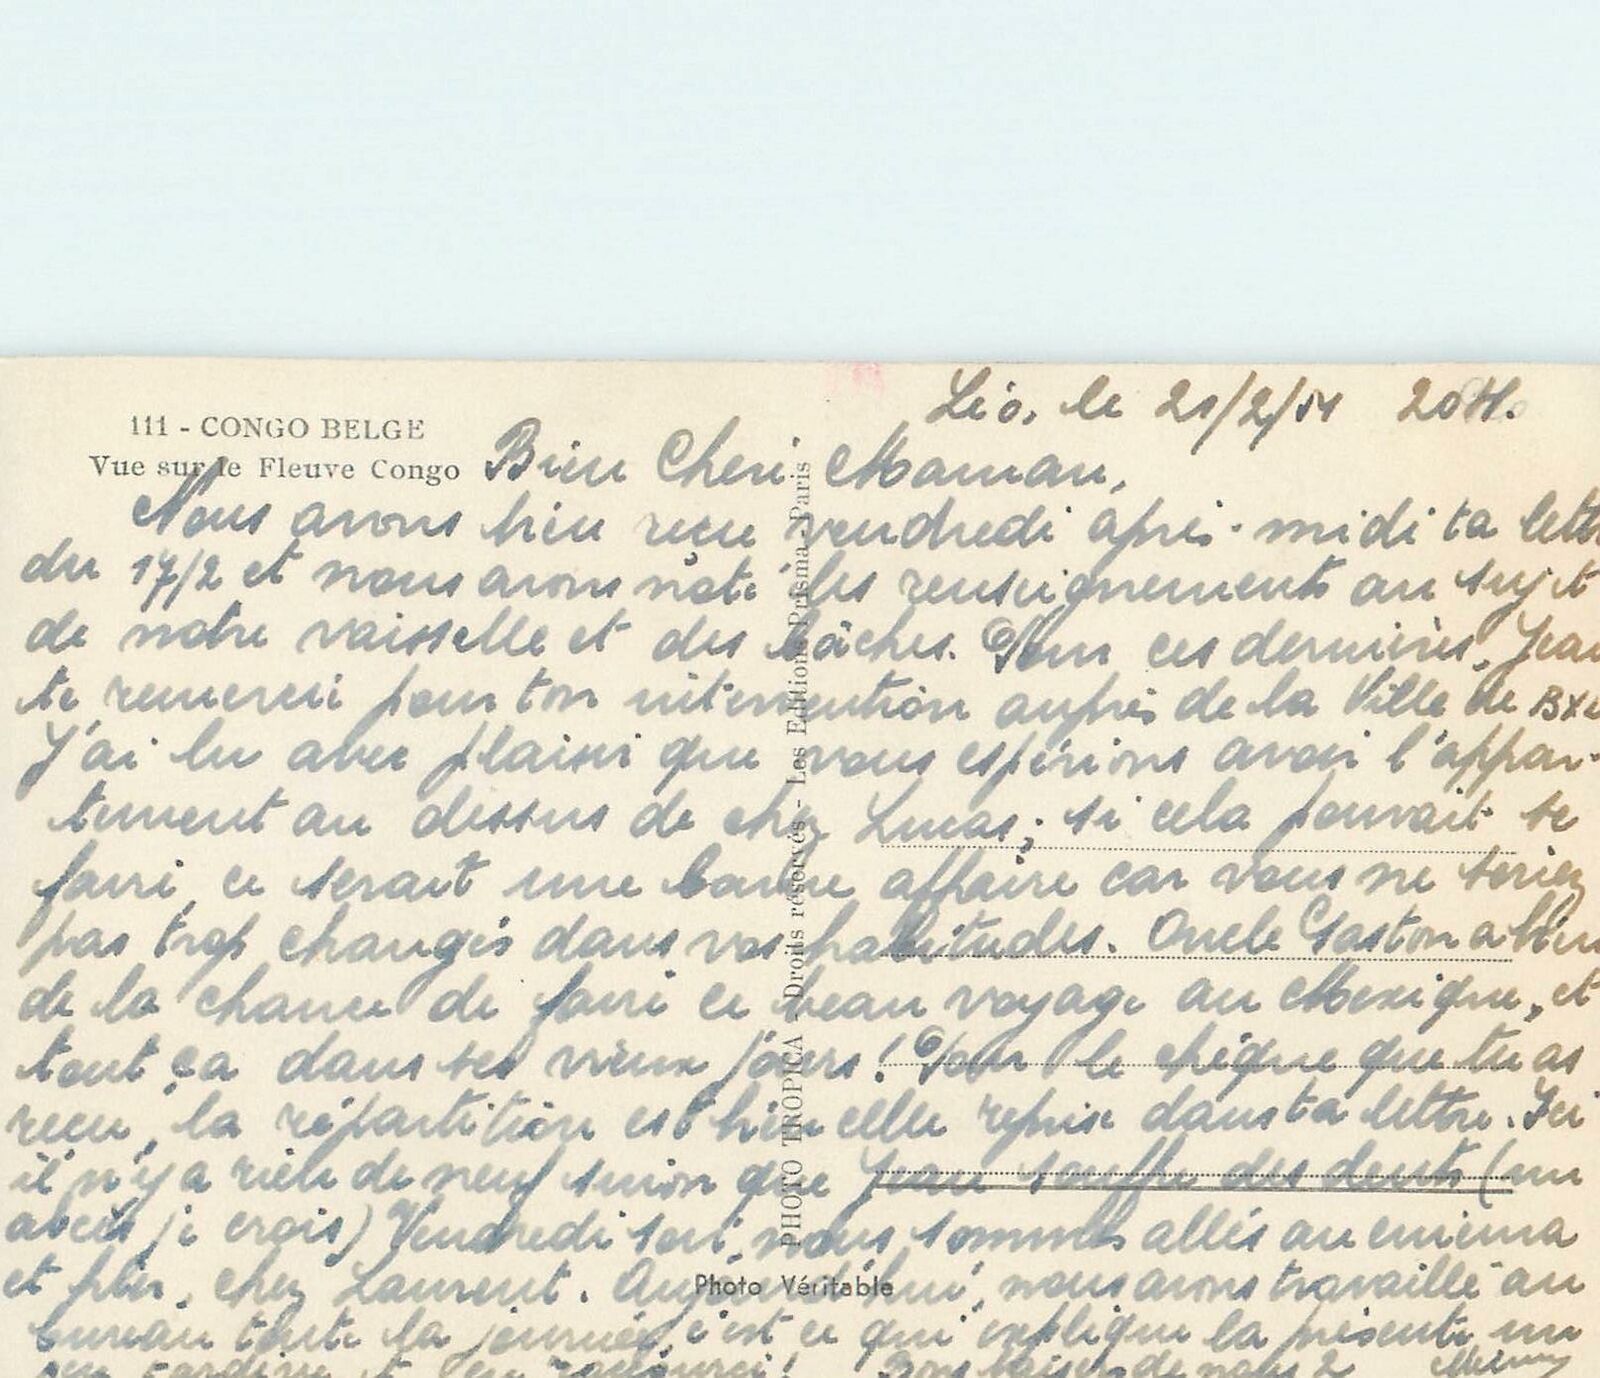 Léo, le 21/2/51 20H.
111 - CONGO BELGE
Vue sur le Fleuve Congo
Bien Cheri Maman,
Nous avons bien reçu vendredi après-midi ta lett
du 17/2 et nous avons noté les renseignements au sujet
de notre vaisselle et des bâches. Pour ces dernières, Jean
te remercie pour ton intervention auprès de la Ville de Bxl
J'ai lu avec plaisir que vous espérions avoir l'appar-
tement au dessus de chez Lucas; si cela pouvait se
faire, ce serait une bonne affaire car vous ne seriez
pas trop changés dans vos habitudes. Oncle Gaston a bien
de la chance de faire ce beau voyage au Mexique, et
tout ça dans ses vieux jours! Pour le chèque que tu as
reçu, la répartition est bien celle reprise dans ta lettre. Ici
il n'y a rien de neuf sinon que Jean souffre des dents (un
abcès je crois) Vendredi soir, nous sommes allés au cinéma
et puis, chez Laurent. Aujourd'hui, nous avons travaillé au
bureau toute la journée, c'est ce qui explique la présente un
peu tardive et Bons baisers de nous 2
PHOTO TROPICA - Droits réservés - Les Editions Prisma - Paris
Photo Véritable